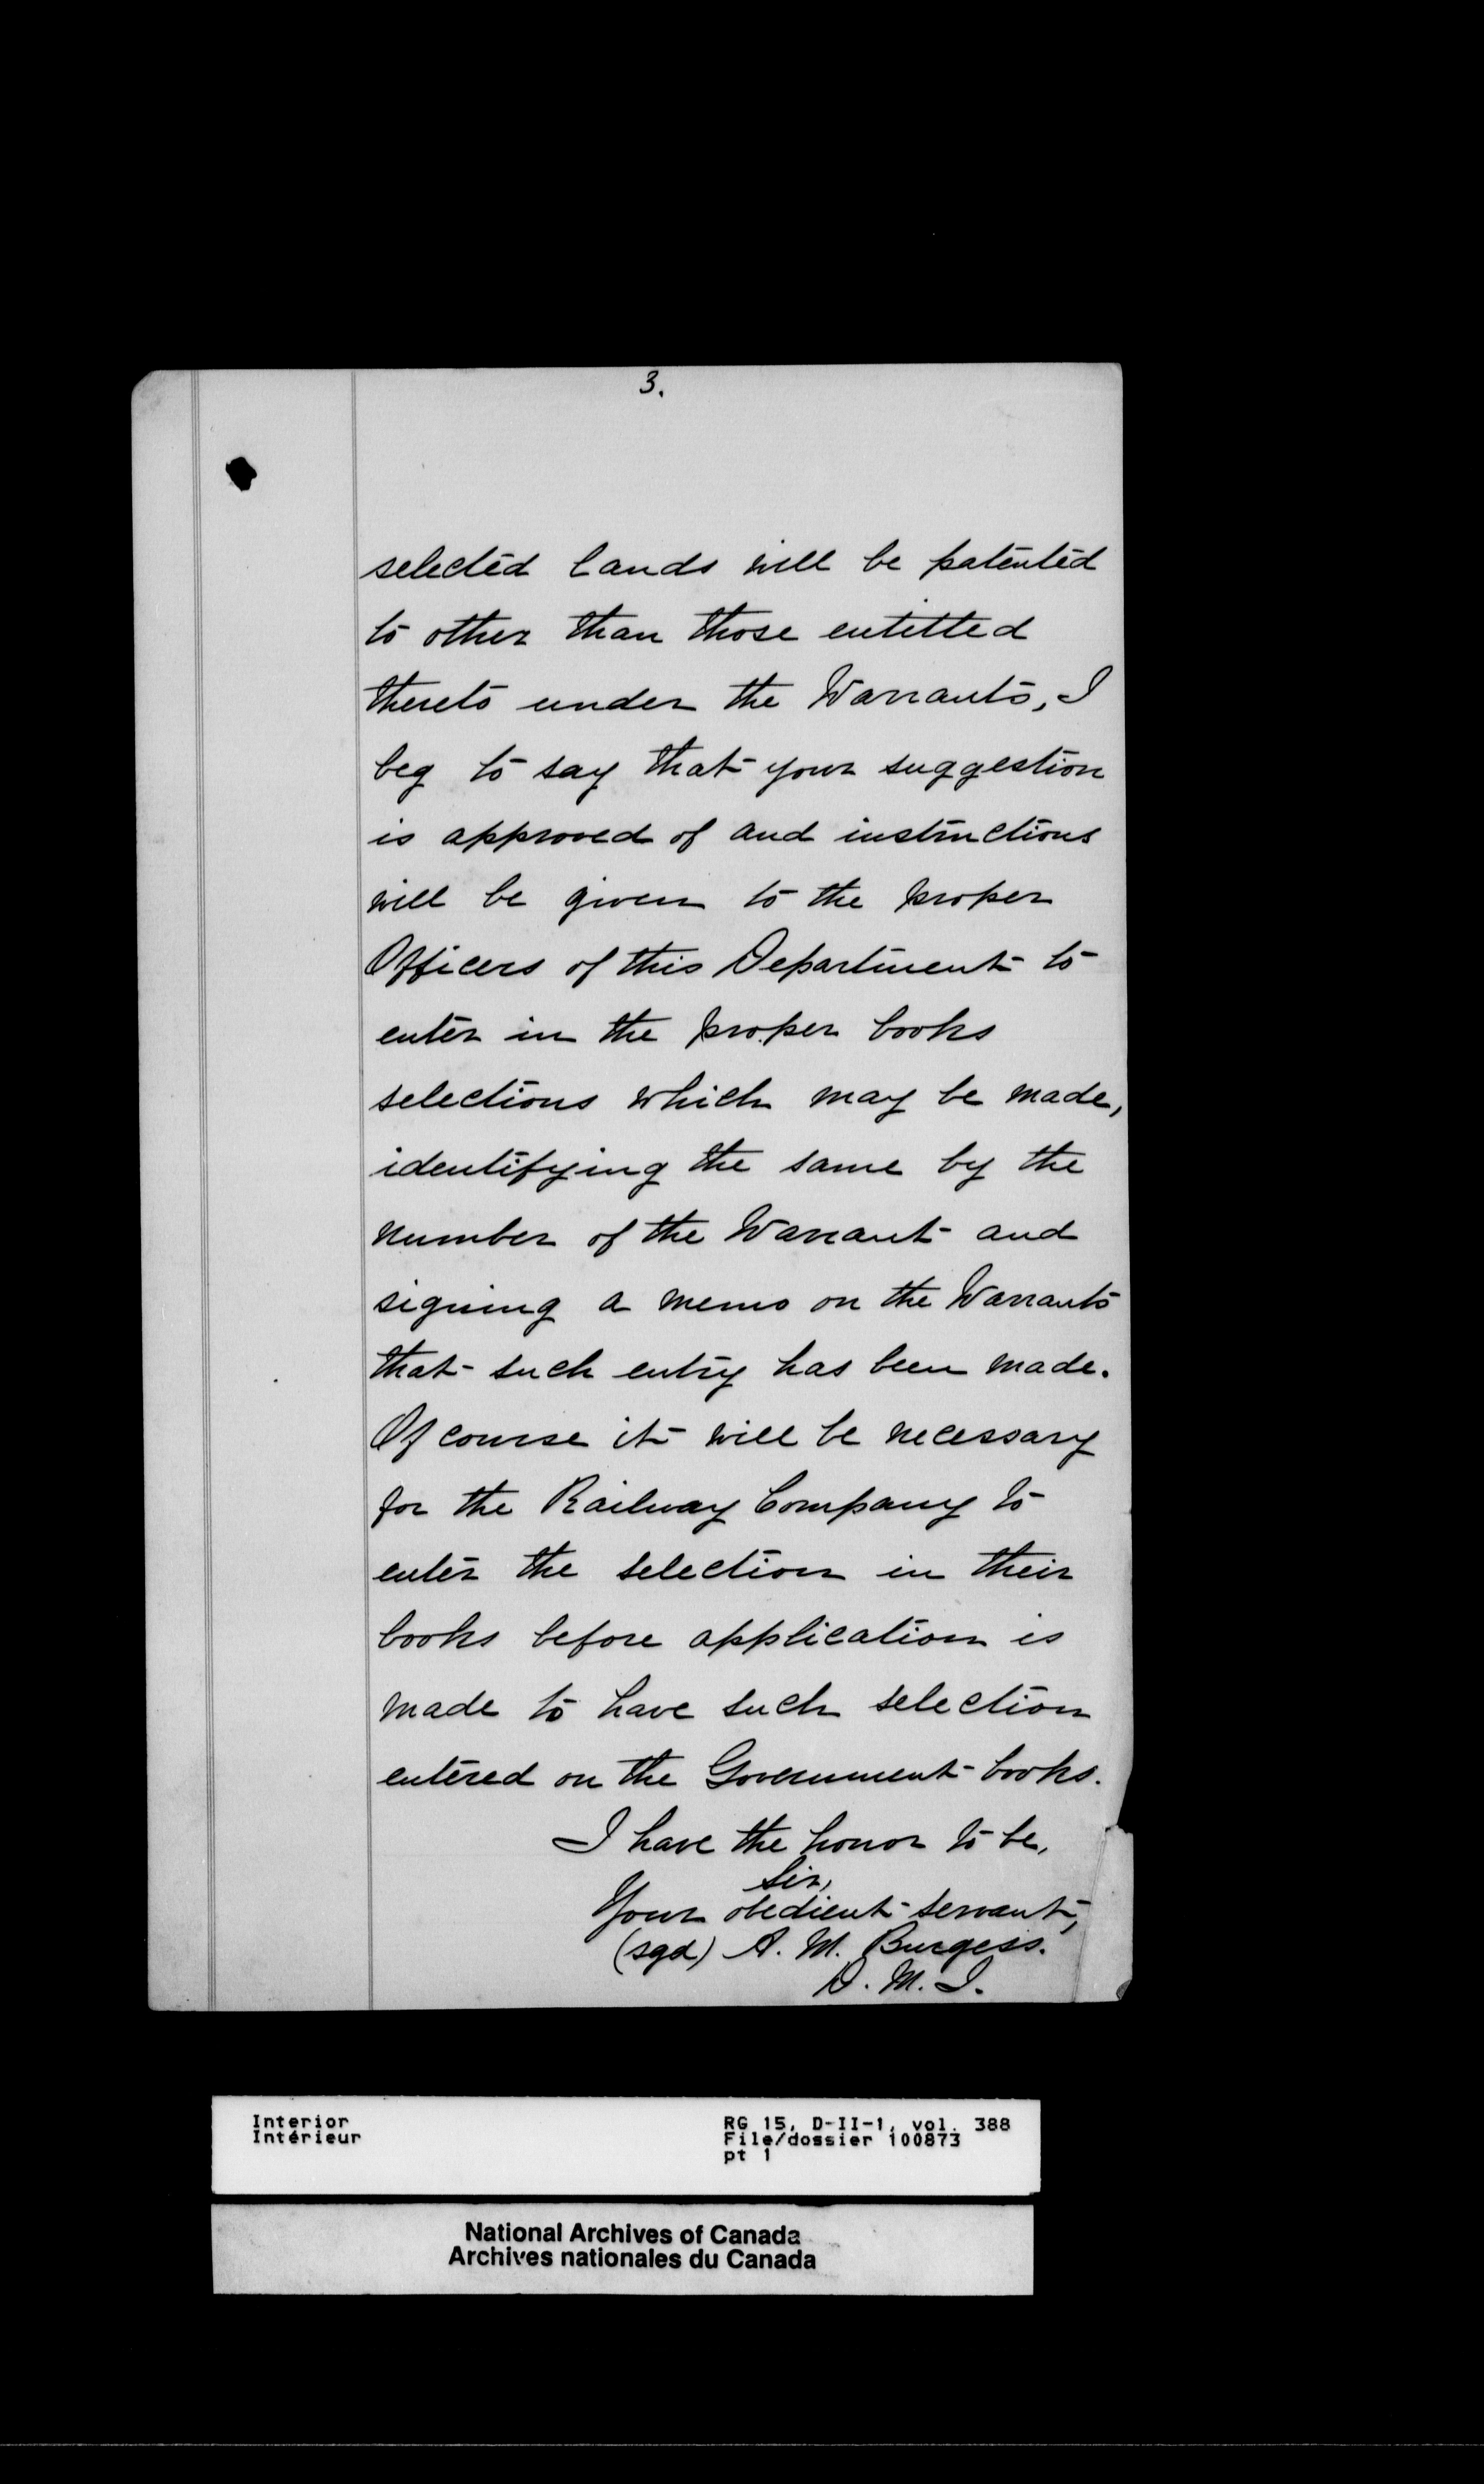 3.
selected lands will be patented
to other than those entitled
thereto under the Warrants, I
beg to say that your suggestion
is approved of and instructions
will be given to the proper
Officers of this Department to
enter in the proper books
selections which may be made,
identifying the same by the
number of the Warrant and
signing a memo on the Warrants
that such entry has been made.
Of course it will be necessary
for the Railway Company to
enter the selection in their
books before application is
made to have such selection
entered on the Government books.
I have the honor to be,
Sir,
Your obedient servant,
(sgd) A. M. Burgess.
D. M. I.
Interior
Intérieur
RG 15, D-II-1, vol. 388
File/dossier 100873
pt 1
National Archives of Canada
Archives nationales du Canada